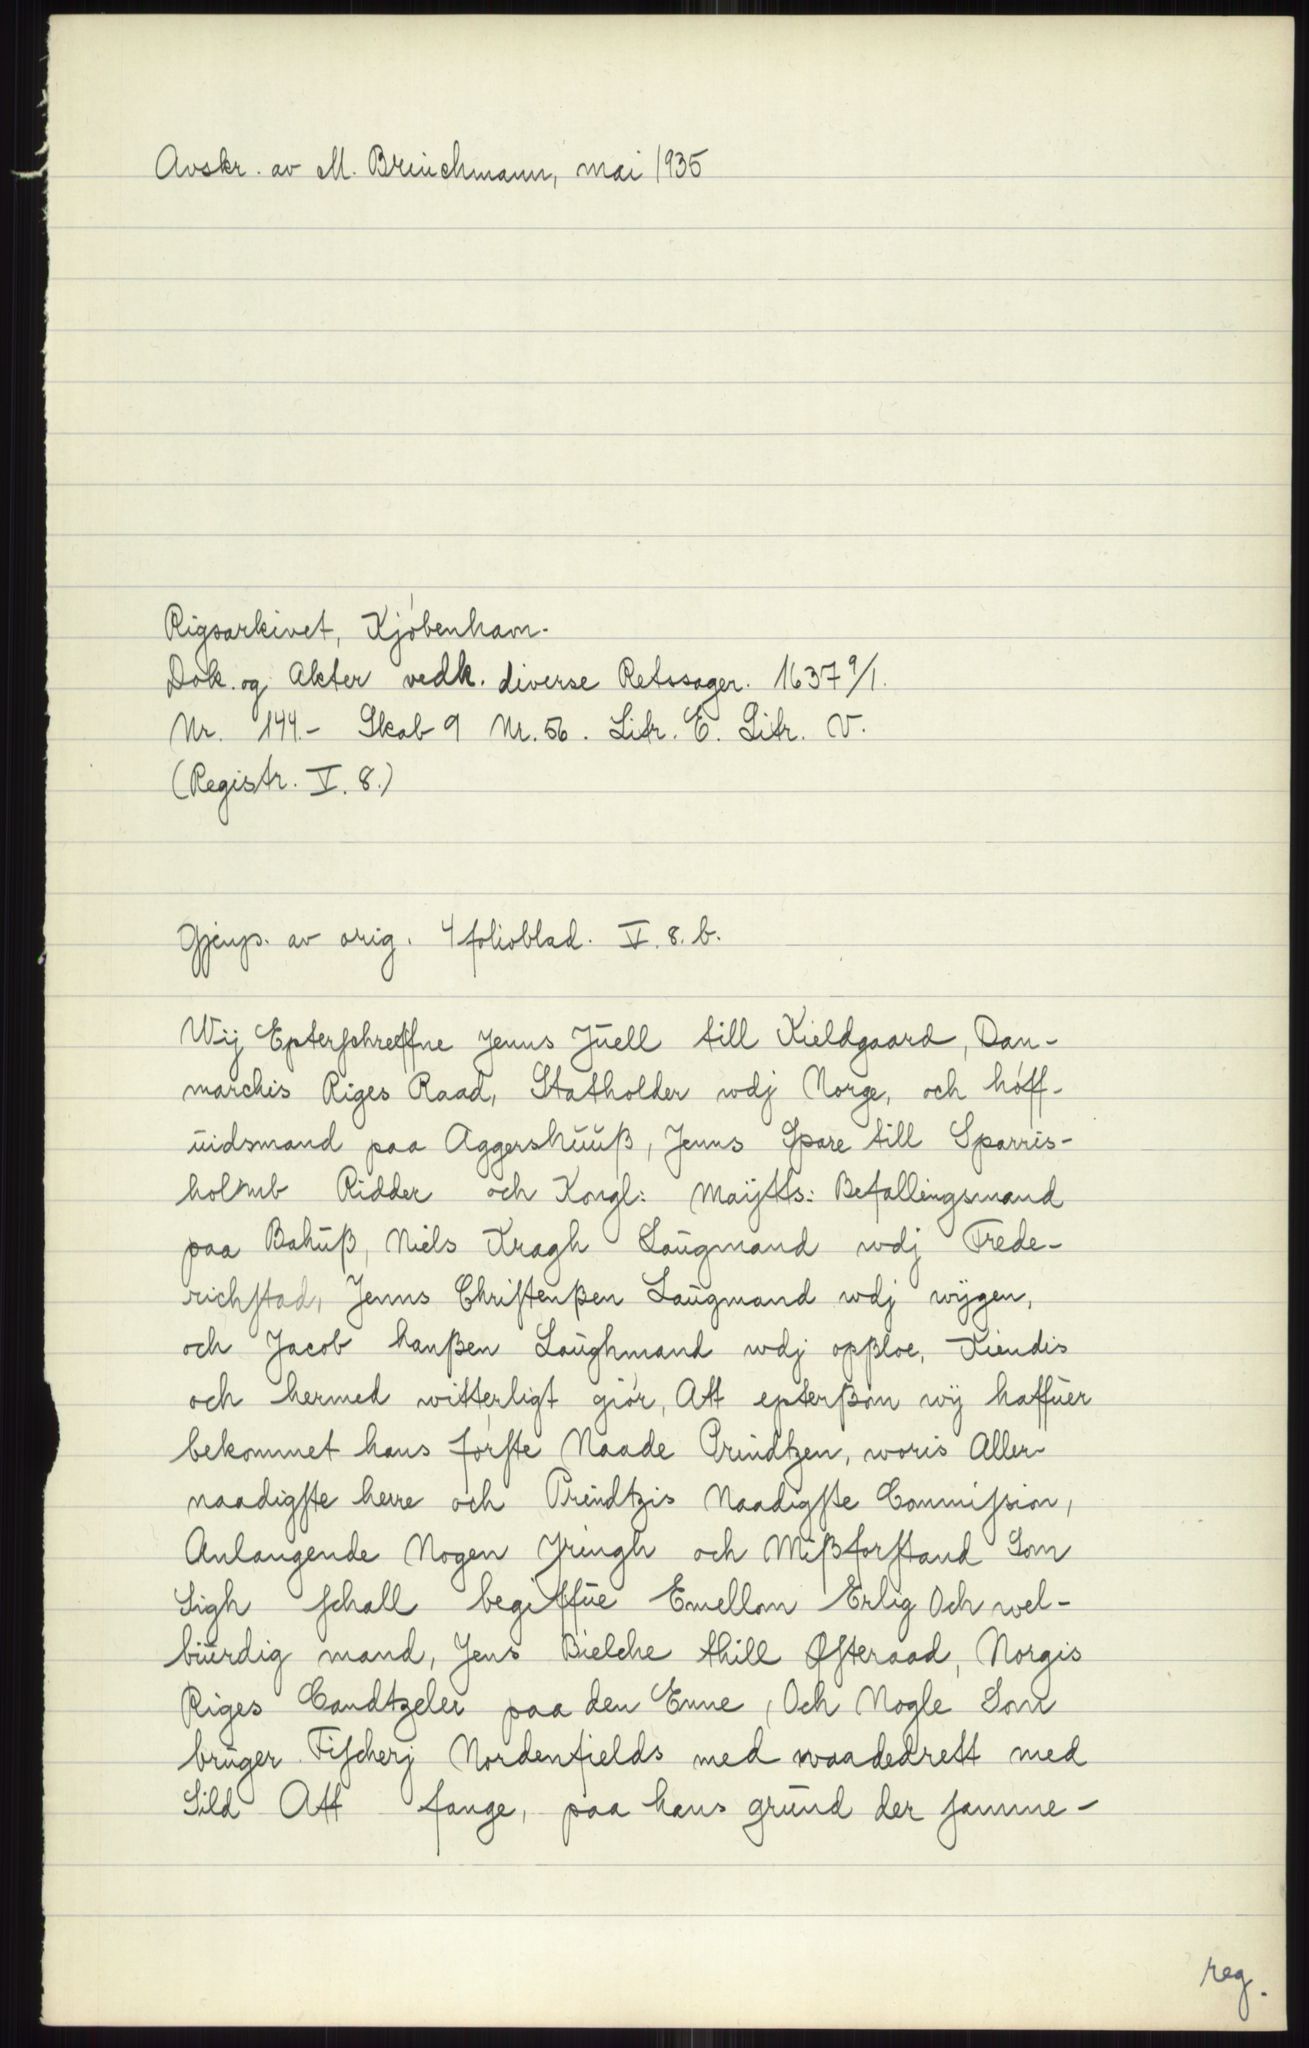 Avskr. av M. Brinchmann, mai 1935
Rigsarkivet, Kjøbenhavn.
Dok. og Akter vedk. diverse Retssager. 1637 9/1.
Nr. 144.- Skab 9 Nr. 56. Litr. E. Litr. V.
(Registr. V. 8.)
Gjenp. av orig. 4 folioblad. V. 8. b.
Wij Epterschreffne Jenns Juell till Kieldgaard, Dan-
marchis Riges Raad, Statholder wdj Norge, och höff-
uidsmand paa Aggershuuß, Jenns Spare till Sparris-
holmb Ridder och Kongl: Maijtts: Befallingsmand
paa Bahuß, Niels Kragh Laugmand wdj Frede-
richstad, Jenns Christenßen Laugmand wdj wijgen,
och Jacob hanßen Laughmand wdj opßloe, Kiendis
och hermed witterligt giör, Att epterßom wij haffuer
bekommet hans förste Naade Prindtzen, woris Aller-
naadigste herre och Prindtzis Naadigste Commission,
Anlangende Nogen Jringh och Mißforstand Som
Sigh schall begiffue Emellom Erlig Och wel-
buurdig mand, Jens Bielche thill Østeraad, Norgis
Riges Candtzeler paa den Enne, Och Nogle Som
bruger Fischerj Nordenfields med waadedrett med
Sild Att fange, paa hans grund der samme-
reg.